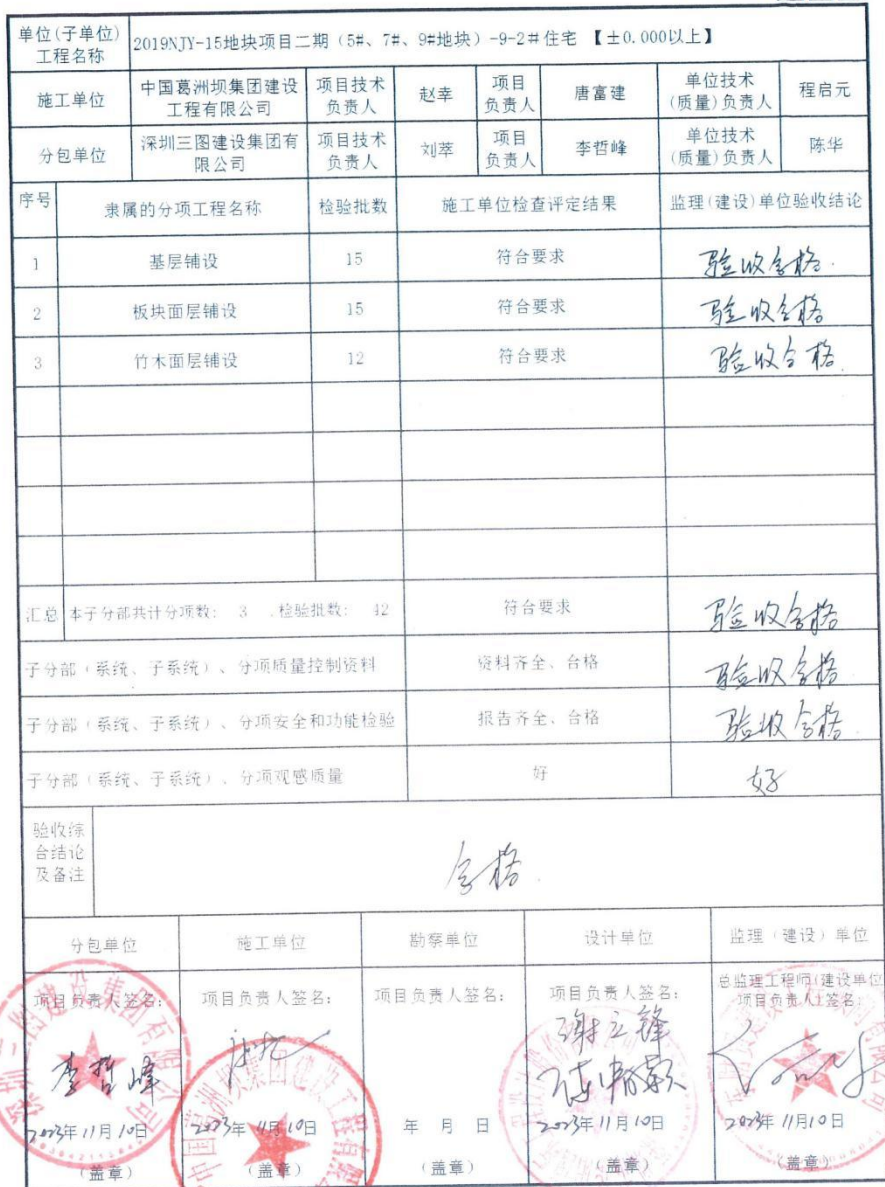 单位(子单位)
工程名称
2019NJY-15地块项目二期（5#、7#、9#地块）-9-2#住宅 【±0.000以上】
施工单位
中国葛洲坝集团建设
工程有限公司
项目技术
负责人
赵幸
项目
负责人
唐富建
单位技术
(质量)负责人
程启元
分包单位
深圳三图建设集团有
限公司
项目技术
负责人
刘萃
项目
负责人
李哲峰
单位技术
(质量)负责人
陈华
序号
隶属的分项工程名称
检验批数
施工单位检查评定结果
监理(建设)单位验收结论
1
基层铺设
15
符合要求
验收合格.
2
板块面层铺设
15
符合要求
验收合格
3
竹木面层铺设
12
符合要求
验收合格
汇总
本子分部共计分项数: 3 .检验批数: 42
符合要求
验收合格
子分部（系统、子系统）、分项质量控制资料
资料齐全、合格
验收合格
子分部（系统、子系统）、分项安全和功能检验
报告齐全、合格
验收合格.
子分部（系统、子系统）、分项观感质量
好
好
验收综
合结论
及备注
合格.
分包单位
施工单位
勘察单位
设计单位
监理（建设）单位
项目负责人签名:
项目负责人签名:
项目负责人签名:
项目负责人签名:
总监理工程师(建设单位
项目负责人)签名:
李哲峰
谢立锋
2023年11月10日
2023年11月10日
年 月 日
2023年11月10日
2023年11月10日
(盖章)
(盖章)
(盖章)
(盖章)
(盖章)
深圳三图建设集团有限公司
中国葛洲坝集团建设工程有限